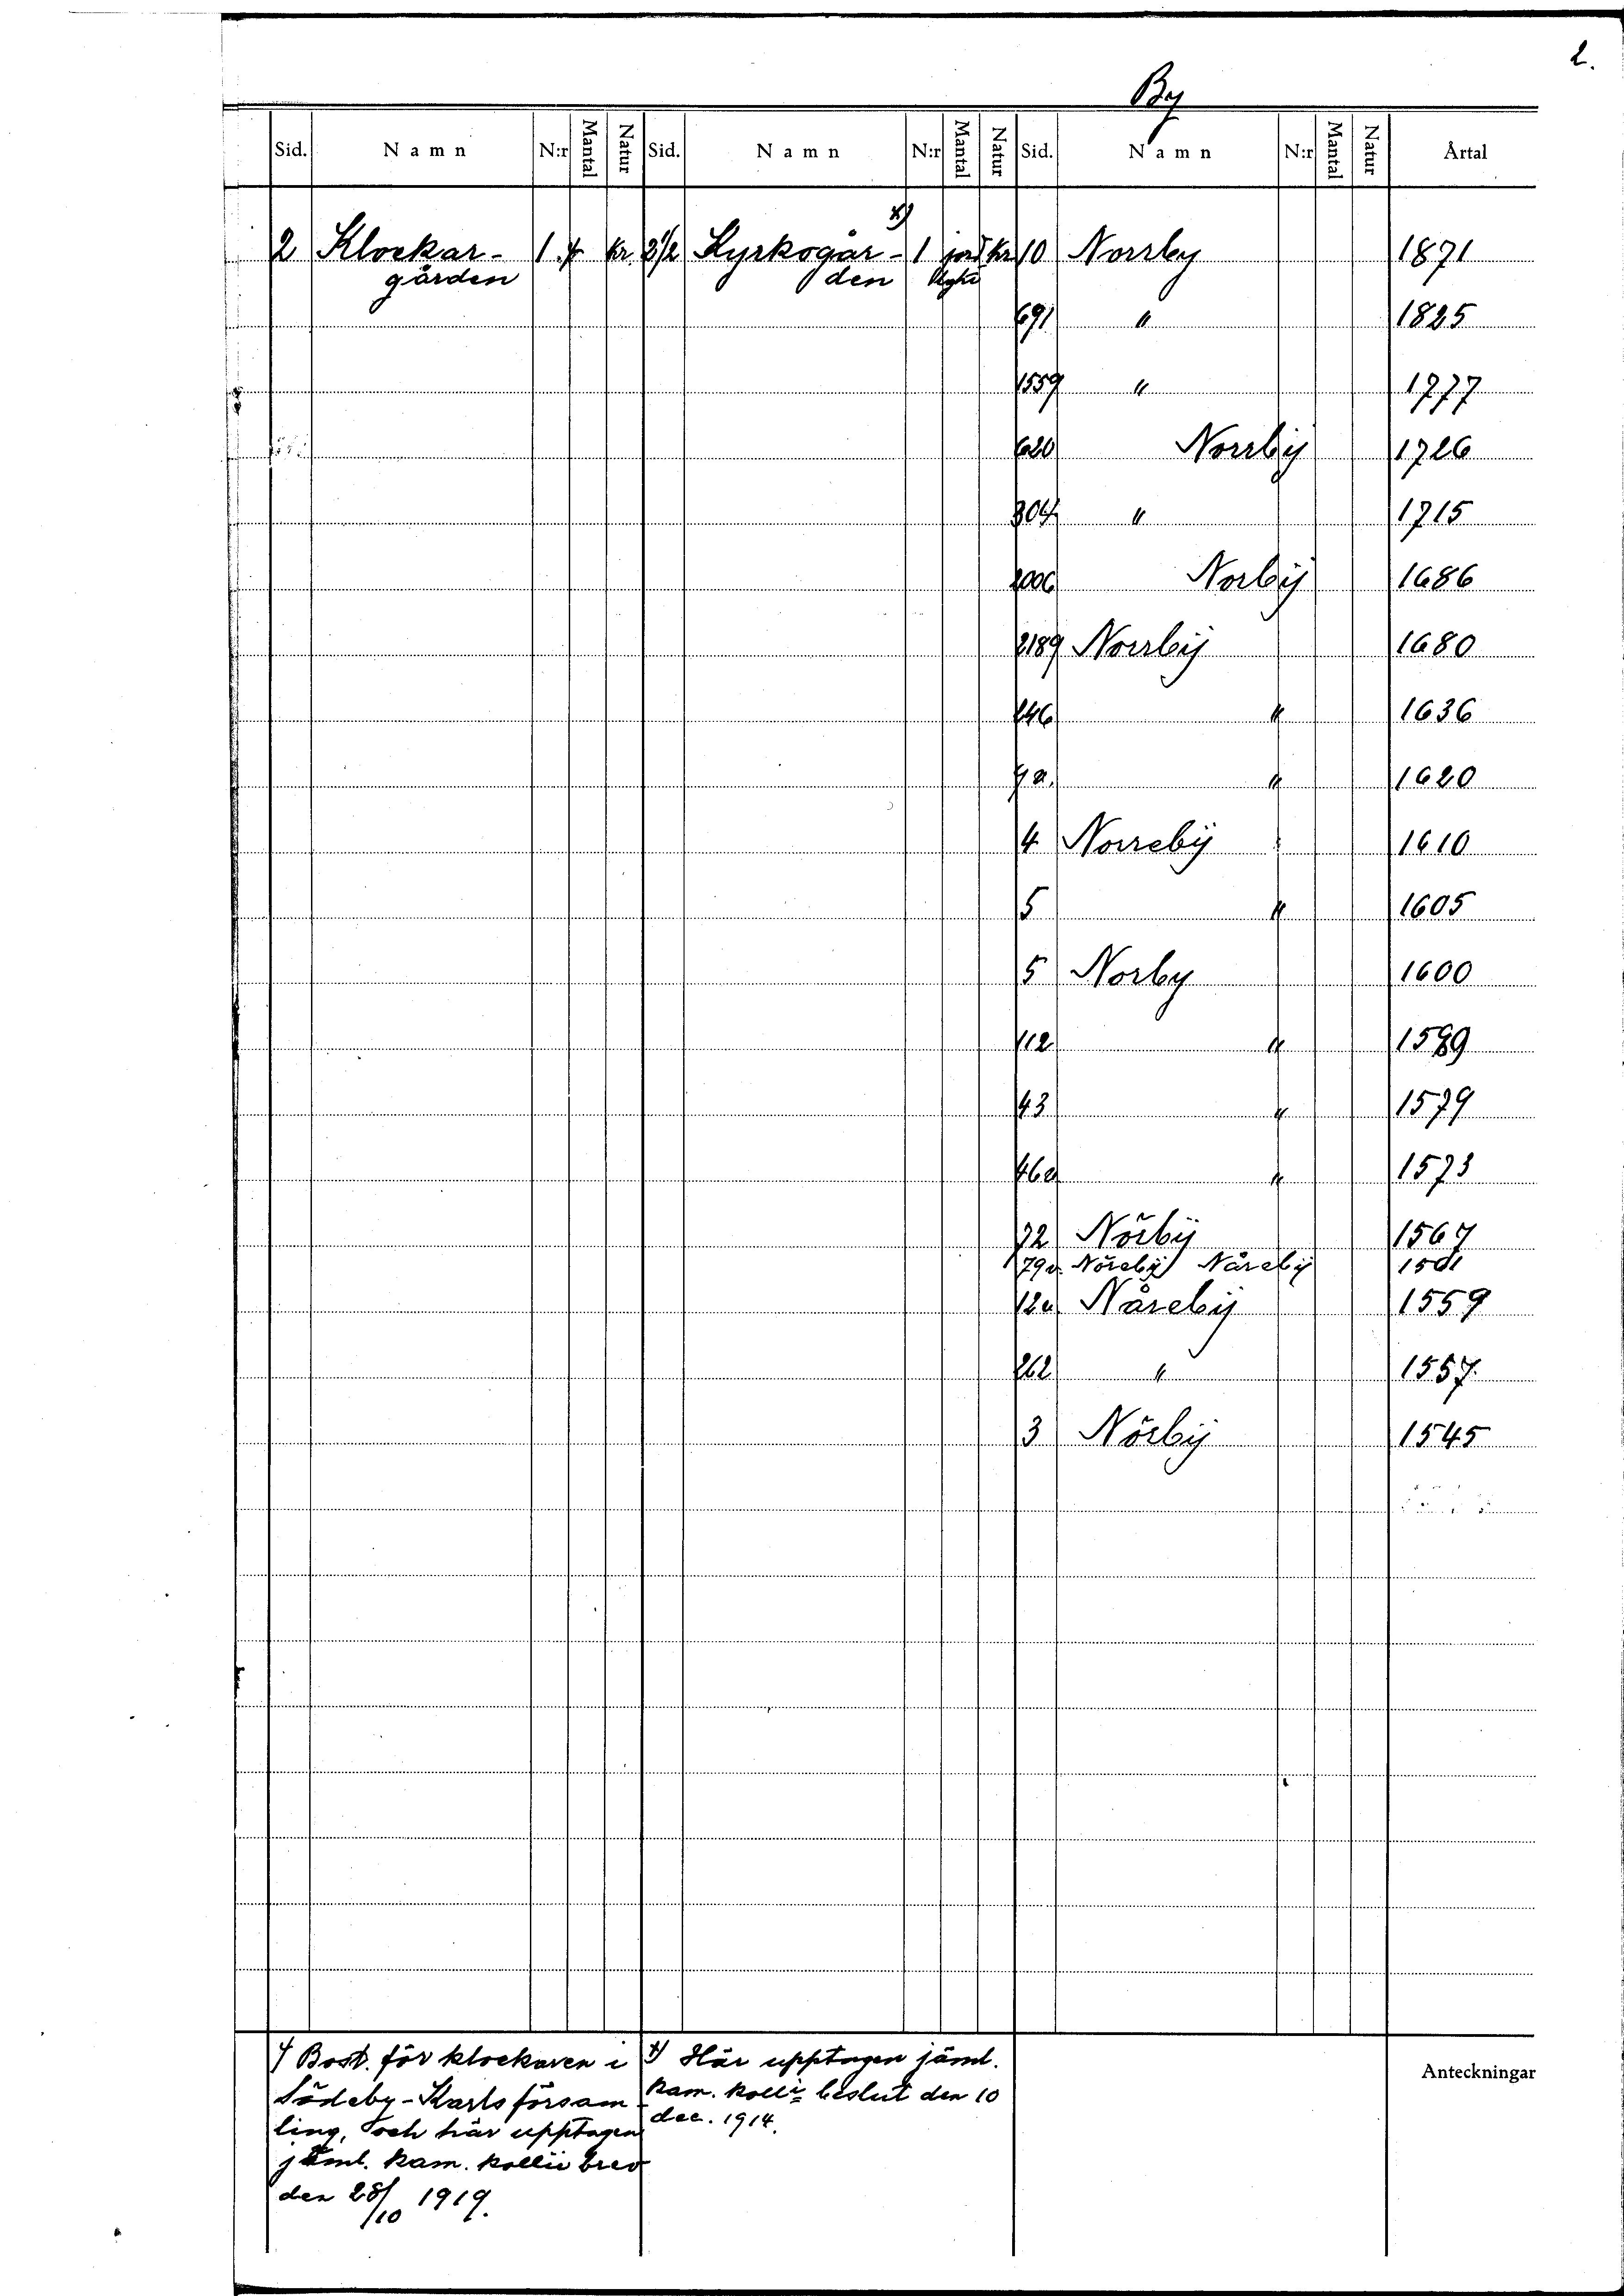 2.
By
Sid. Namn N:r Mantal Natur Sid. Namn N:r Mantal Natur Sid. Namn N:r Mantal Natur Årtal
x)
2 Klockar- 1 kr 2 1/2 Kyrkogår- 1 jord kr 10 Norrby 1871
gården den
691 " 1825
1559 " 1777
620 Norrbÿ 1726
304 " 1715
2006 Norbÿ 1686
2189 Norrbÿ 1680
246 " 1636
7a. " 1620
4 Norrebÿ 1610
5 " 1605
5 Norby 1600
112 " 1589
43 " 1579
46a " 1573
72 Nörbÿ 1567
79v. Nörebÿ Nårebÿ
12a Nårebÿ 1559
262 " 1557
3 Nörbÿ 1545
Bost. för klockaren i
Södeby-Karls försam-
ling, och här upptagen
jäml. Kam. kollii brev
den 28/10 1919.
x) Här upptagen jäml.
Kam. kolli: beslut den 10
dec. 1914.
Anteckningar